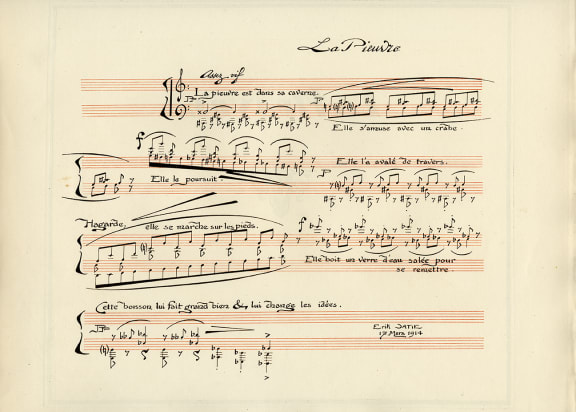 La Pieuvre
Assez vif
La pieuvre est dans sa caverne.
Elle s'amuse avec un crabe.
f
Elle le poursuit.
Elle l'a avalé de travers.
Hagarde, elle se marche sur les pieds.
f
Elle boit un verre d'eau salée pour
se remettre.
Cette boisson lui fait grand bien & lui change les idées.
Erik SATIE
17 Mars 1914